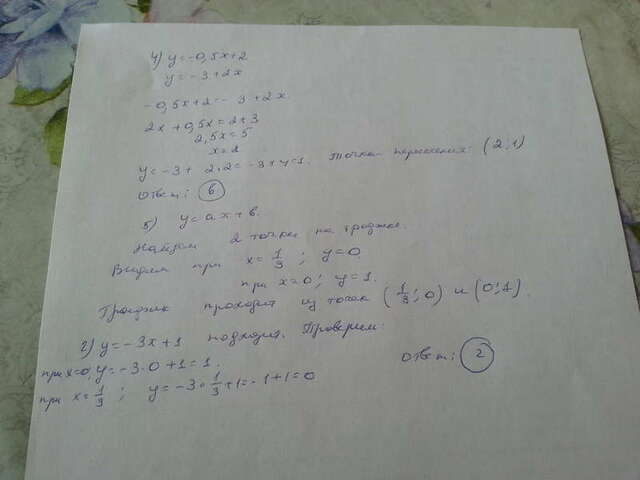 4) y=-0,5x+2
y=-3+2x
-0,5x+2=-3+2x
2x+0,5x=2+3
2,5x=5
x=2
y=-3+2·2=-3+4=1. Точка пересечения: (2;1)
Ответ: в
5) y=ax+b.
Найдем 2 точки на графике.
Видим при x=1/3; y=0
при x=0; y=1.
График проходит из точек (1/3;0) и (0;1).
г) y=-3x+1 подходит. Проверим:
при x=0, y=-3·0+1=1.
при x=1/3; y=-3·1/3+1=-1+1=0
Ответ: г